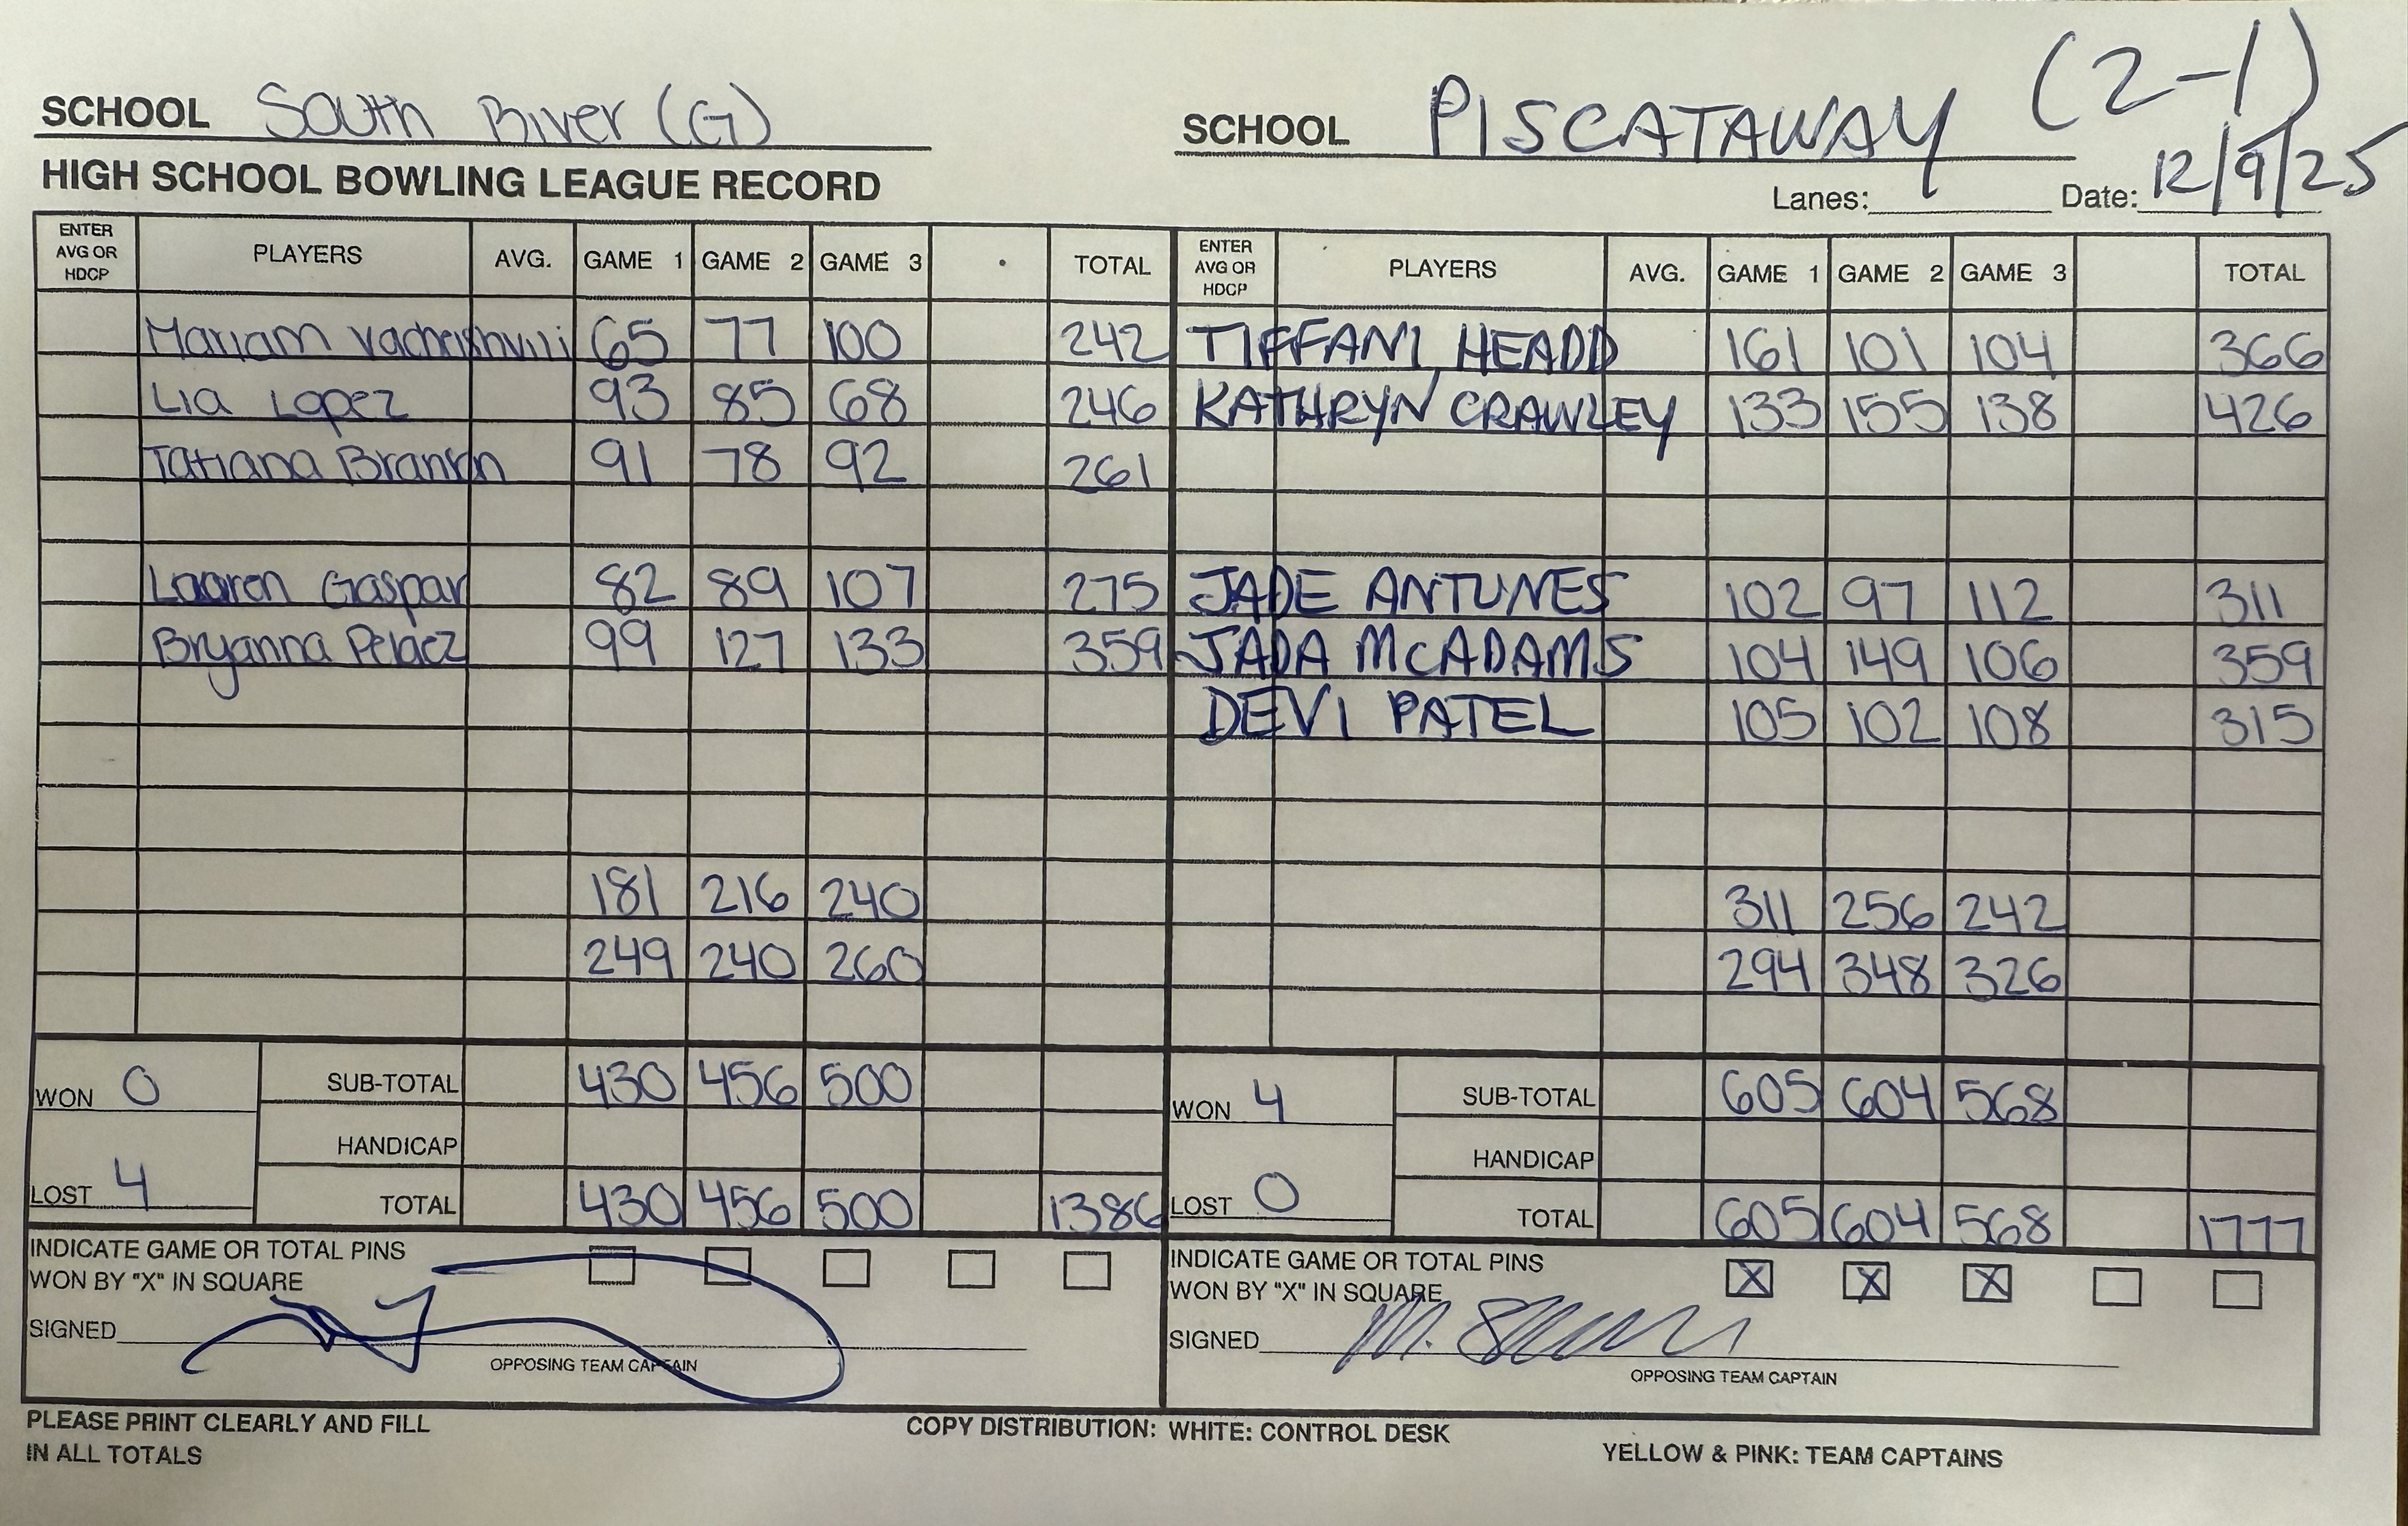 SCHOOL South River (G) SCHOOL PISCATAWAY (2-1)
HIGH SCHOOL BOWLING LEAGUE RECORD Lanes: Date: 12/9/25
ENTER AVG OR HDCP PLAYERS AVG. GAME 1 GAME 2 GAME 3 TOTAL ENTER AVG OR HDCP PLAYERS AVG. GAME 1 GAME 2 GAME 3 TOTAL
Mariam 65 77 100 242 TIFFANI HEADD 161 101 104 366
Lia Lopez 93 85 68 246 KATHRYN CRAWLEY 133 155 138 426
Tatiana 91 78 92 261
Lauren Gaspar 82 89 107 275 JADE ANTUNES 102 97 112 311
Bryanna Pelaez 99 127 133 359 JADA McADAMS 104 149 106 359
DEVI PATEL 105 102 108 315
181 216 240 311 256 242
249 240 260 294 348 326
WON 0 SUB-TOTAL 430 456 500 WON 4 SUB-TOTAL 605 604 568
HANDICAP HANDICAP
LOST 4 TOTAL 430 456 500 1386 LOST 0 TOTAL 605 604 568 1777
INDICATE GAME OR TOTAL PINS INDICATE GAME OR TOTAL PINS
WON BY "X" IN SQUARE WON BY "X" IN SQUARE X X X
SIGNED SIGNED M.
OPPOSING TEAM CAPTAIN OPPOSING TEAM CAPTAIN
PLEASE PRINT CLEARLY AND FILL COPY DISTRIBUTION: WHITE: CONTROL DESK
IN ALL TOTALS YELLOW & PINK: TEAM CAPTAINS